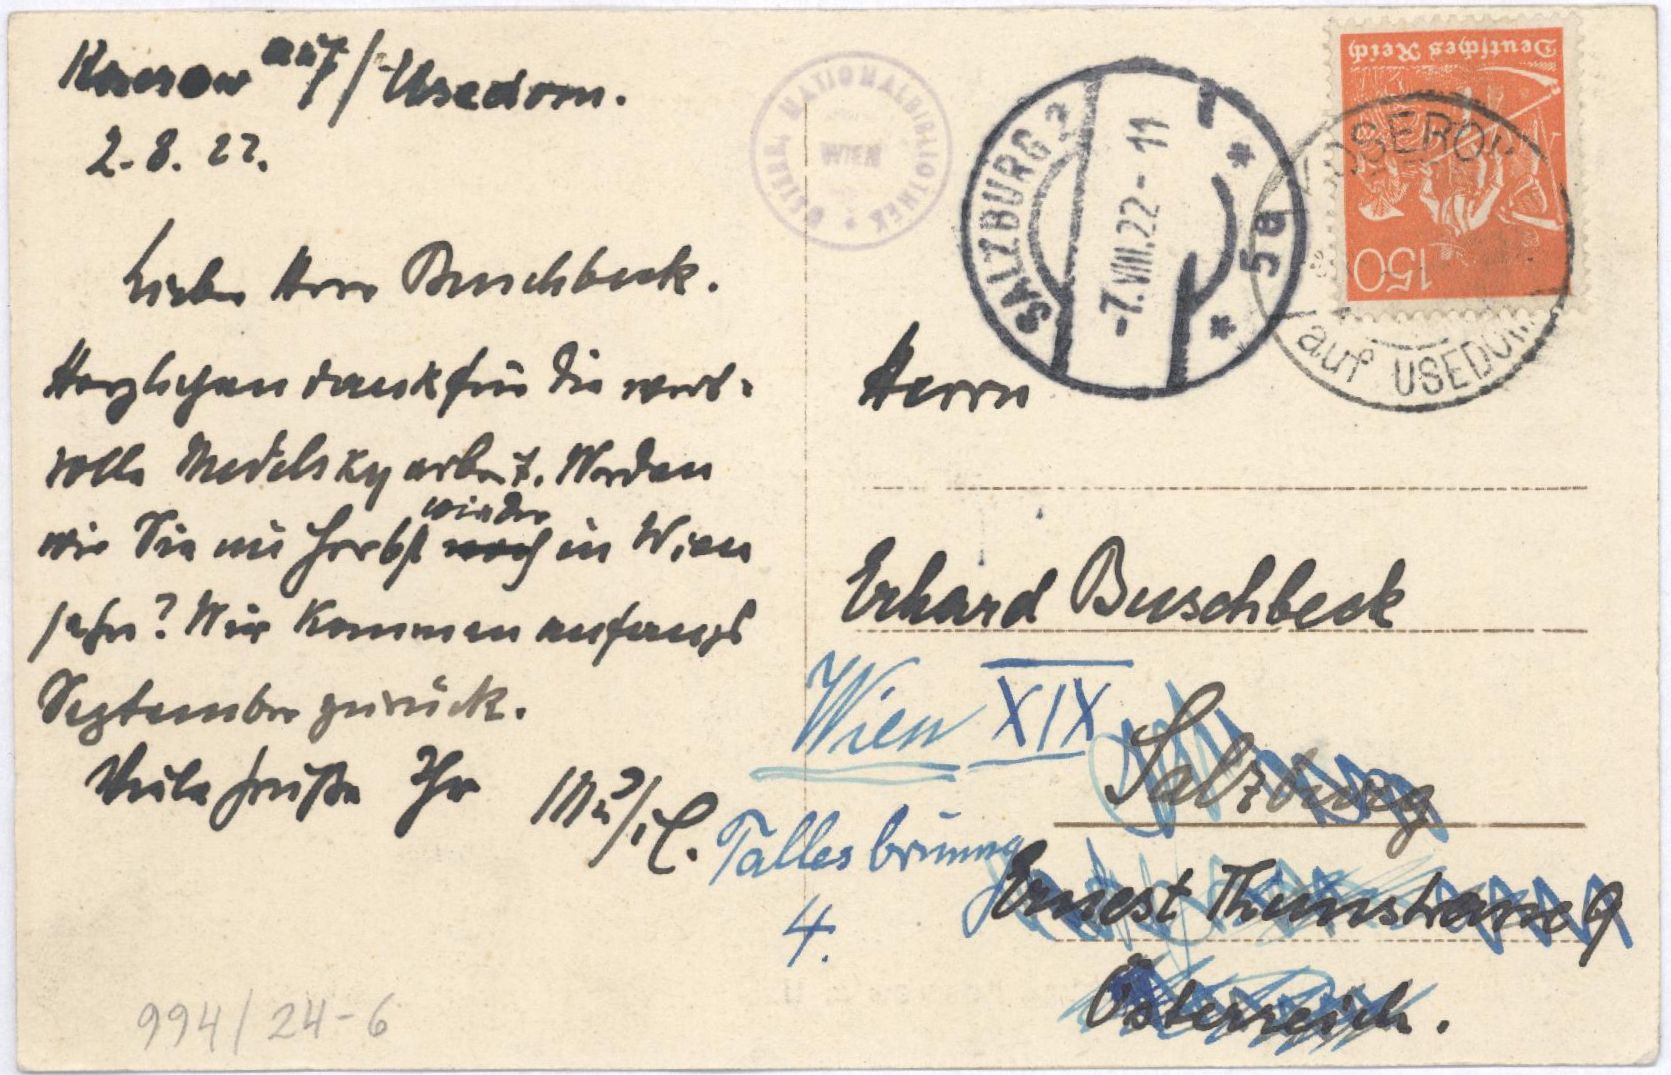 Koserow auf/Usedom.
2.8.22.
Lieber Herr Buschbeck.
Herzlichen dank für die wert-
volle Medelsky arbeit. Werden
wir Sie im Herbst noch wieder in Wien
sehn? Wir kommen anfangs
September zurück.
Viele Grüße Ihr
994/24-6
ÖSTERR. NATIONALBIBLIOTHEK
WIEN
SALZBURG 2
-7.VIII.22-11
* 5a *
Deutsches Reich
150
KOSEROW
auf USEDOM
Herrn
Erhard Buschbeck
Wien XIX
Salzburg
Tallesbrunng
4.
Ernest Thunstrasse 9
Österreich.